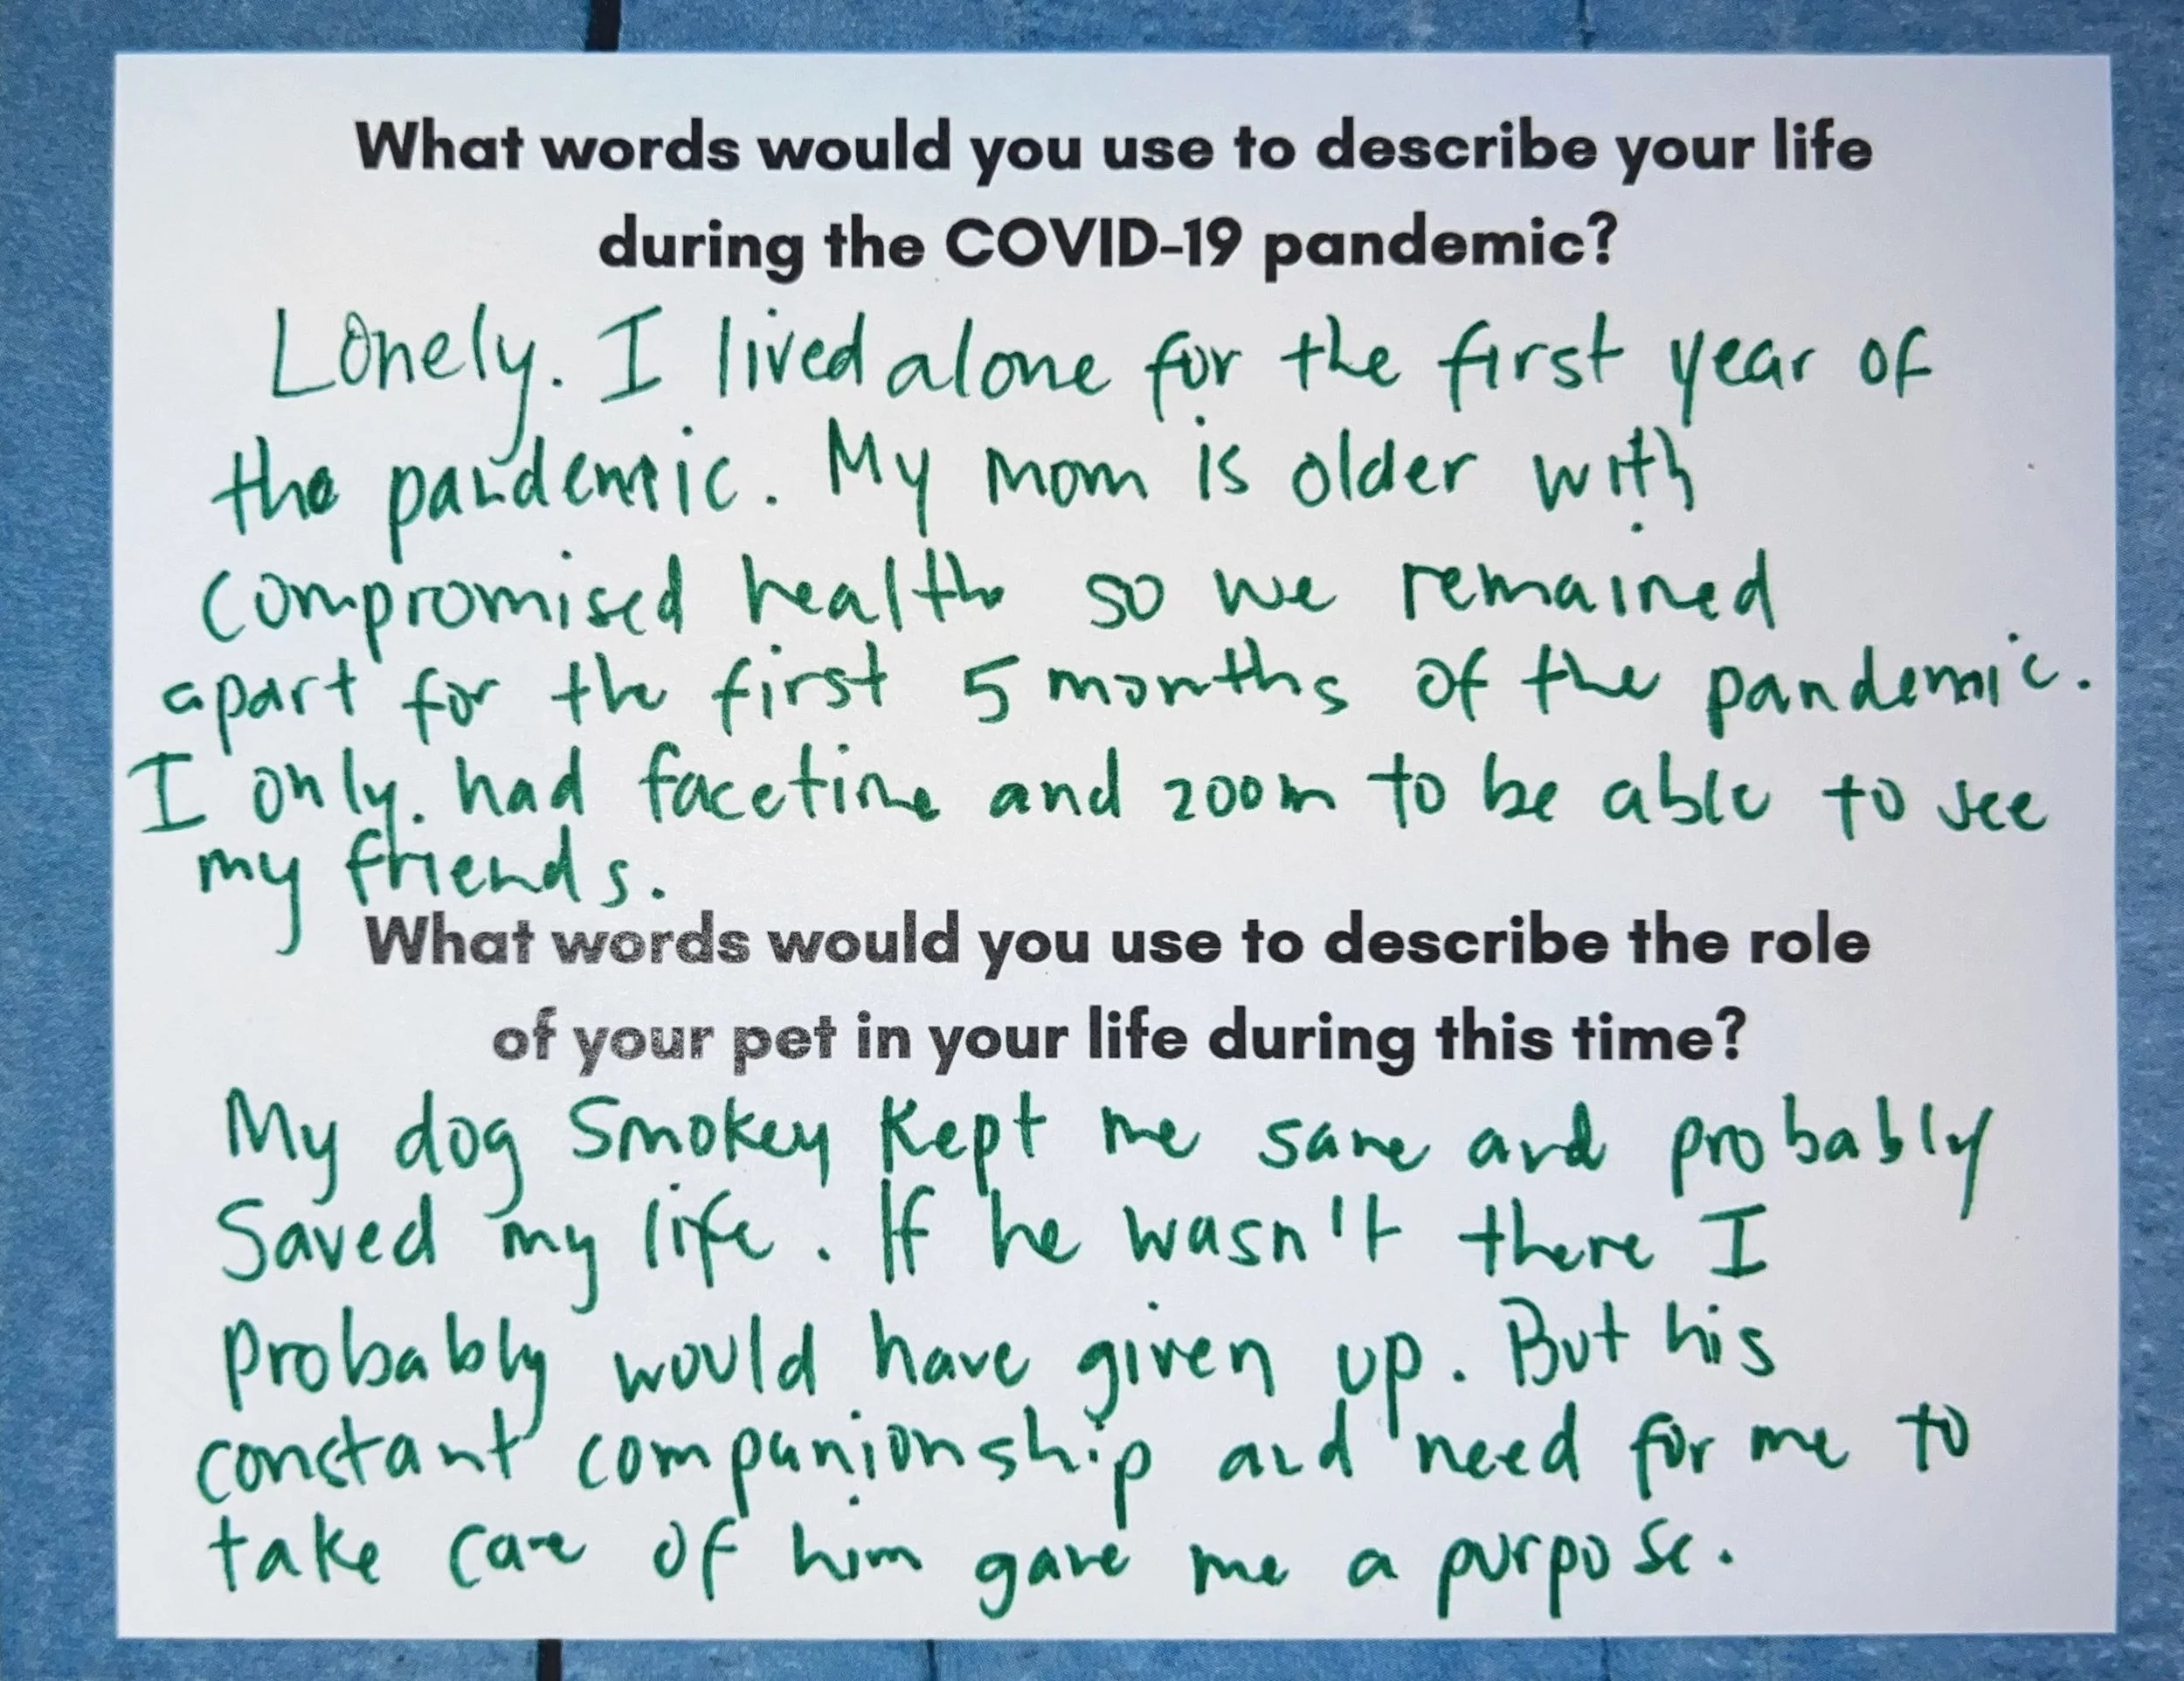 What words would you use to describe your life
during the COVID-19 pandemic?
Lonely. I lived alone for the first year of
the pandemic. My mom is older with
compromised health so we remained
apart for the first 5 months of the pandemic.
I only had facetime and zoom to be able to see
my friends.
What words would you use to describe the role
of your pet in your life during this time?
My dog Smokey kept me sane and probably
saved my life. If he wasn't there I
probably would have given up. But his
constant companionship and need for me to
take care of him gave me a purpose.